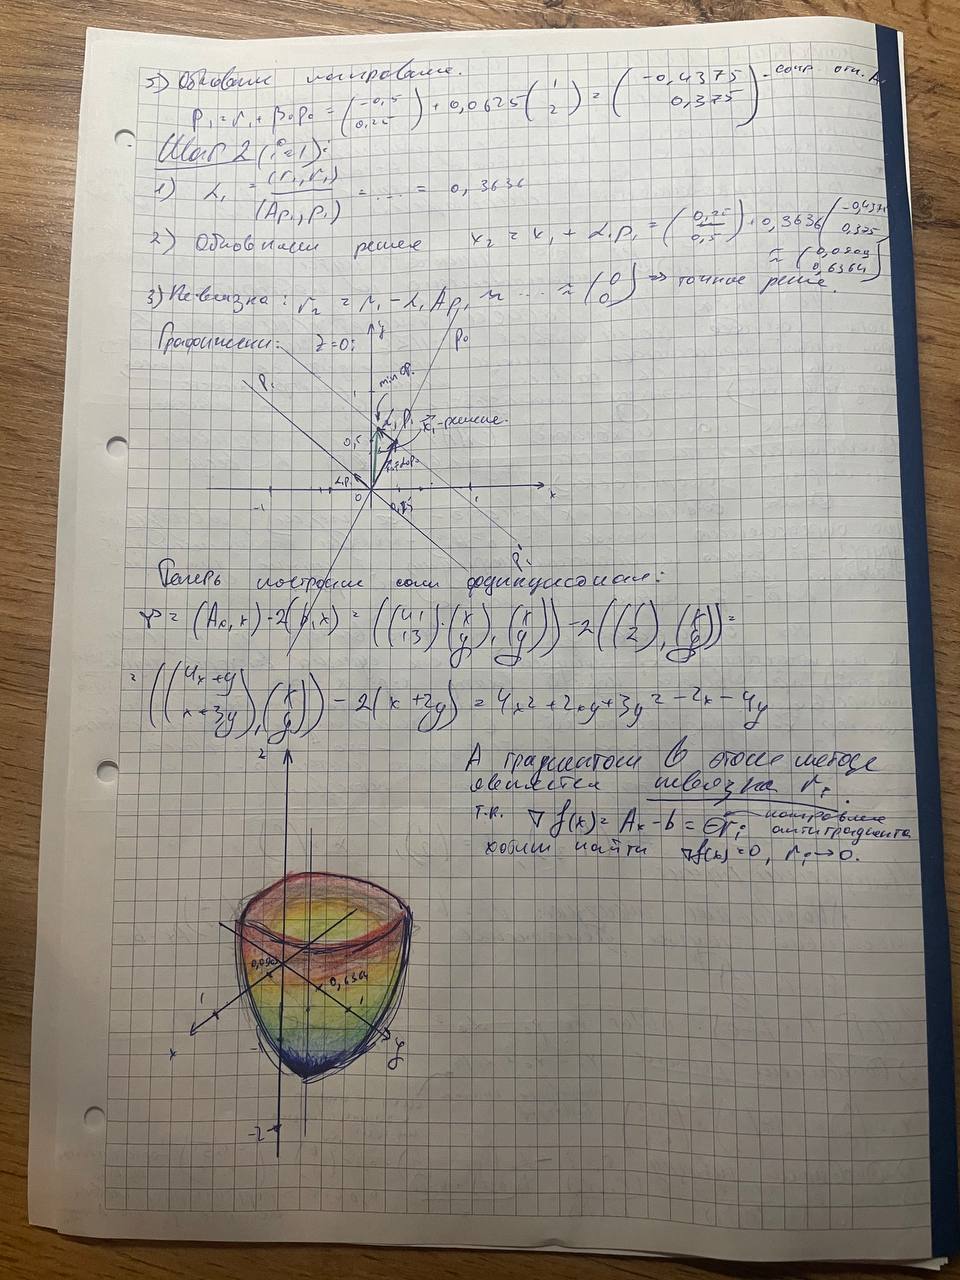 5) Обновим направление.
p₁ = r₁ + β₀p₀ = (-0,5 0,25) + 0,0625 (1 2) = (-0,4375 0,375) - сопр. отн. A.
Шаг 2 (i=1):
1) α₁ = (r₁, r₁) / (Ap₁, p₁) = .... = 0,3636
2) Обновили решен x₂ = x₁ + α₁p₁ = (0,25 0,5) + 0,3636 (-0,4375 0,375)
≈ (0,0909 0,6364)
3) Невязка: r₂ = r₁ - α₁Ap₁ ≈ ... ≈ (0 0) => точное реше.
Графически: z=0: y p₀
p₁ min φ.
1
α₁p₁ x₁-решение.
0,5
α₁p₁
-1 0 0,25 1 x
p₁
Теперь построим сам функционал:
φ = (Ax, x) - 2(b, x) = ((4 1 1 3)·(x y), (x y)) - 2((1 2), (x y)) =
= ((4x+y x+3y), (x y)) - 2(x+2y) = 4x² + 2xy + 3y² - 2x - 4y
z
А градиентом в этом методе
является невязка rᵢ.
т.к. ∇f(x) = Ax - b = -rᵢ направление антиградиента
хотим найти ∇f(x) = 0, rᵢ → 0.
0,0909 0,6364
1 1
x y
-1
-2